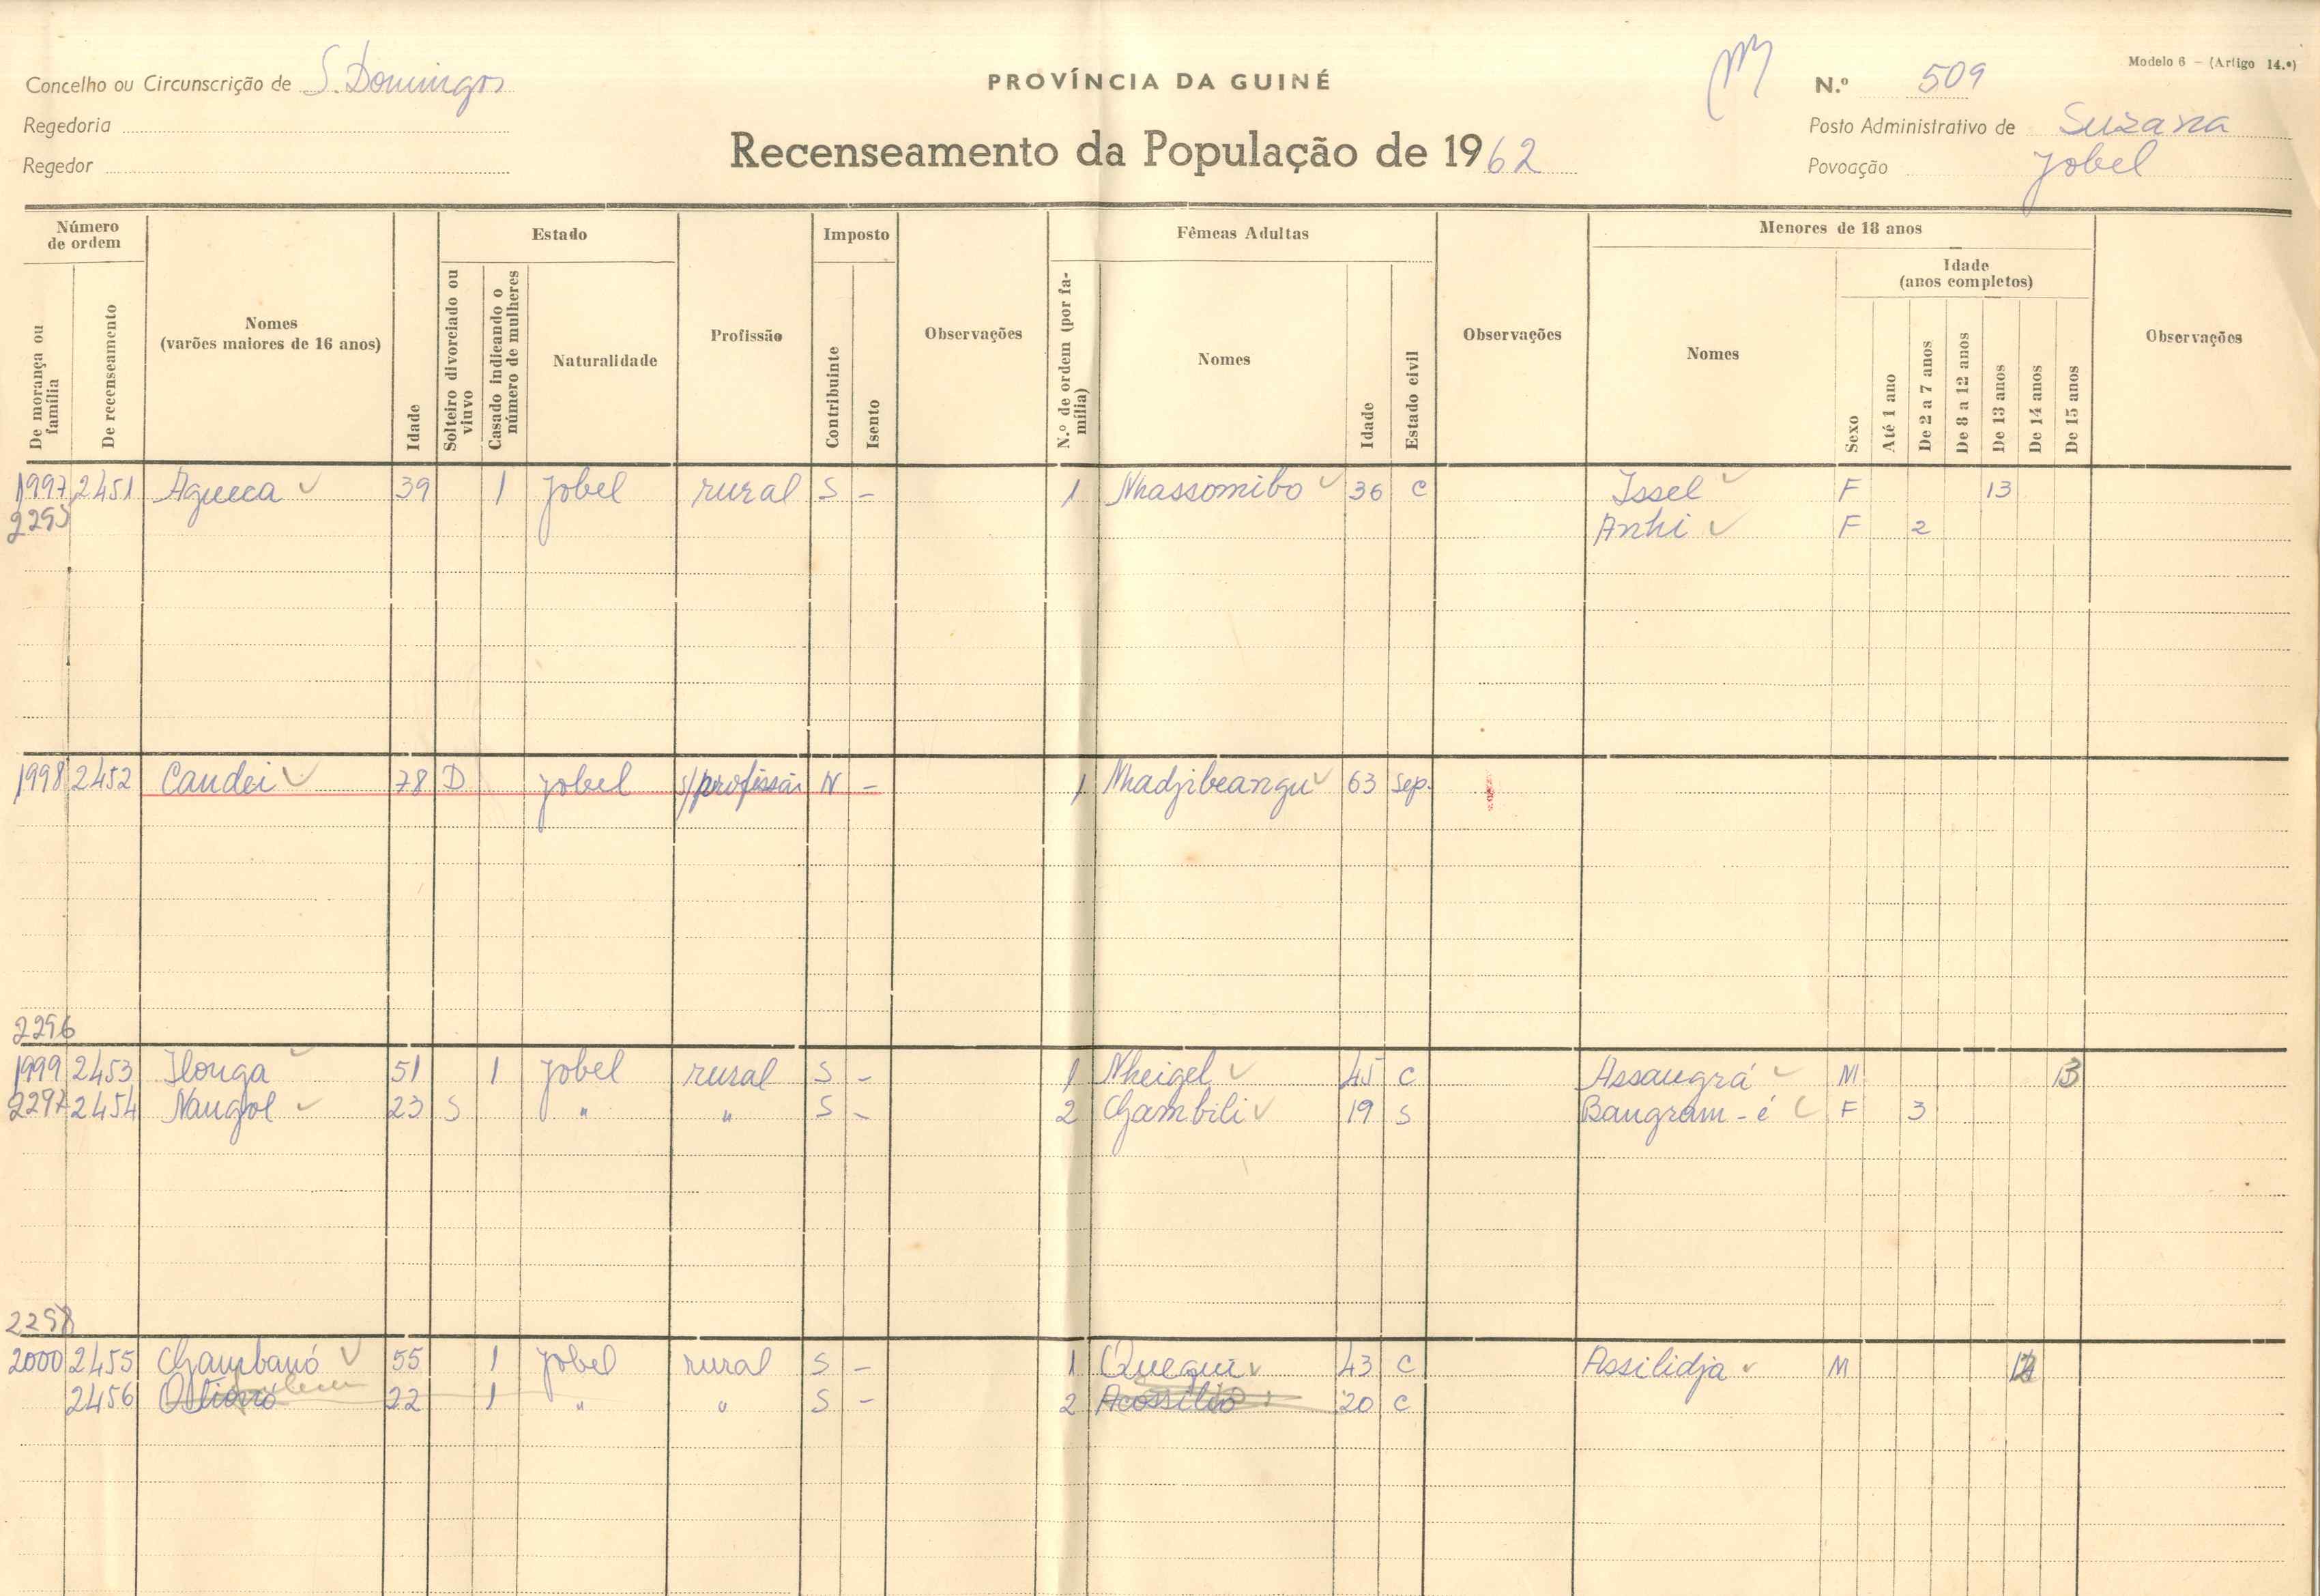 Modelo 6 - (Artigo 14.º)
Concelho ou Circunscrição de S. Domingos
PROVÍNCIA DA GUINÉ
N.º 509
Regedoria
Recenseamento da População de 1962
Posto Administrativo de Suzana
Regedor
Povoação Jobel
Número de ordem
De morança ou família
De recenseamento
Nomes
(varões maiores de 16 anos)
Idade
Estado
Solteiro divorciado ou viuvo
Casado indicando o número de mulheres
Naturalidade
Profissão
Imposto
Contribuinte
Isento
Observações
Fêmeas Adultas
N.º de ordem (por família)
Nomes
Idade
Estado civil
Observações
Menores de 18 anos
Nomes
Sexo
Idade
(anos completos)
Até 1 ano
De 2 a 7 anos
De 8 a 12 anos
De 13 anos
De 14 anos
De 15 anos
Observações
1997 2451 Agueca 39 1 Jobel rural S - 1 Nhassomibo 36 C Issel F 13
2295 Anhi F 2
1998 2452 Candei 78 D Jobel s/profissão N - 1 Nhadjibeangu 63 Sep.
2296
1999 2453 Ilonga 51 1 Jobel rural S - 1 Nheigel 45 C Assangrá M
2297 2454 Nangol 23 S " " S - 2 Chambili 19 S Bangram-é F 3
2298
2000 2455 Chambanó 55 1 Jobel rural S - 1 Quequi 43 C Assilidja M
2456 22 1 " " S - 2 Acossilió 20 C